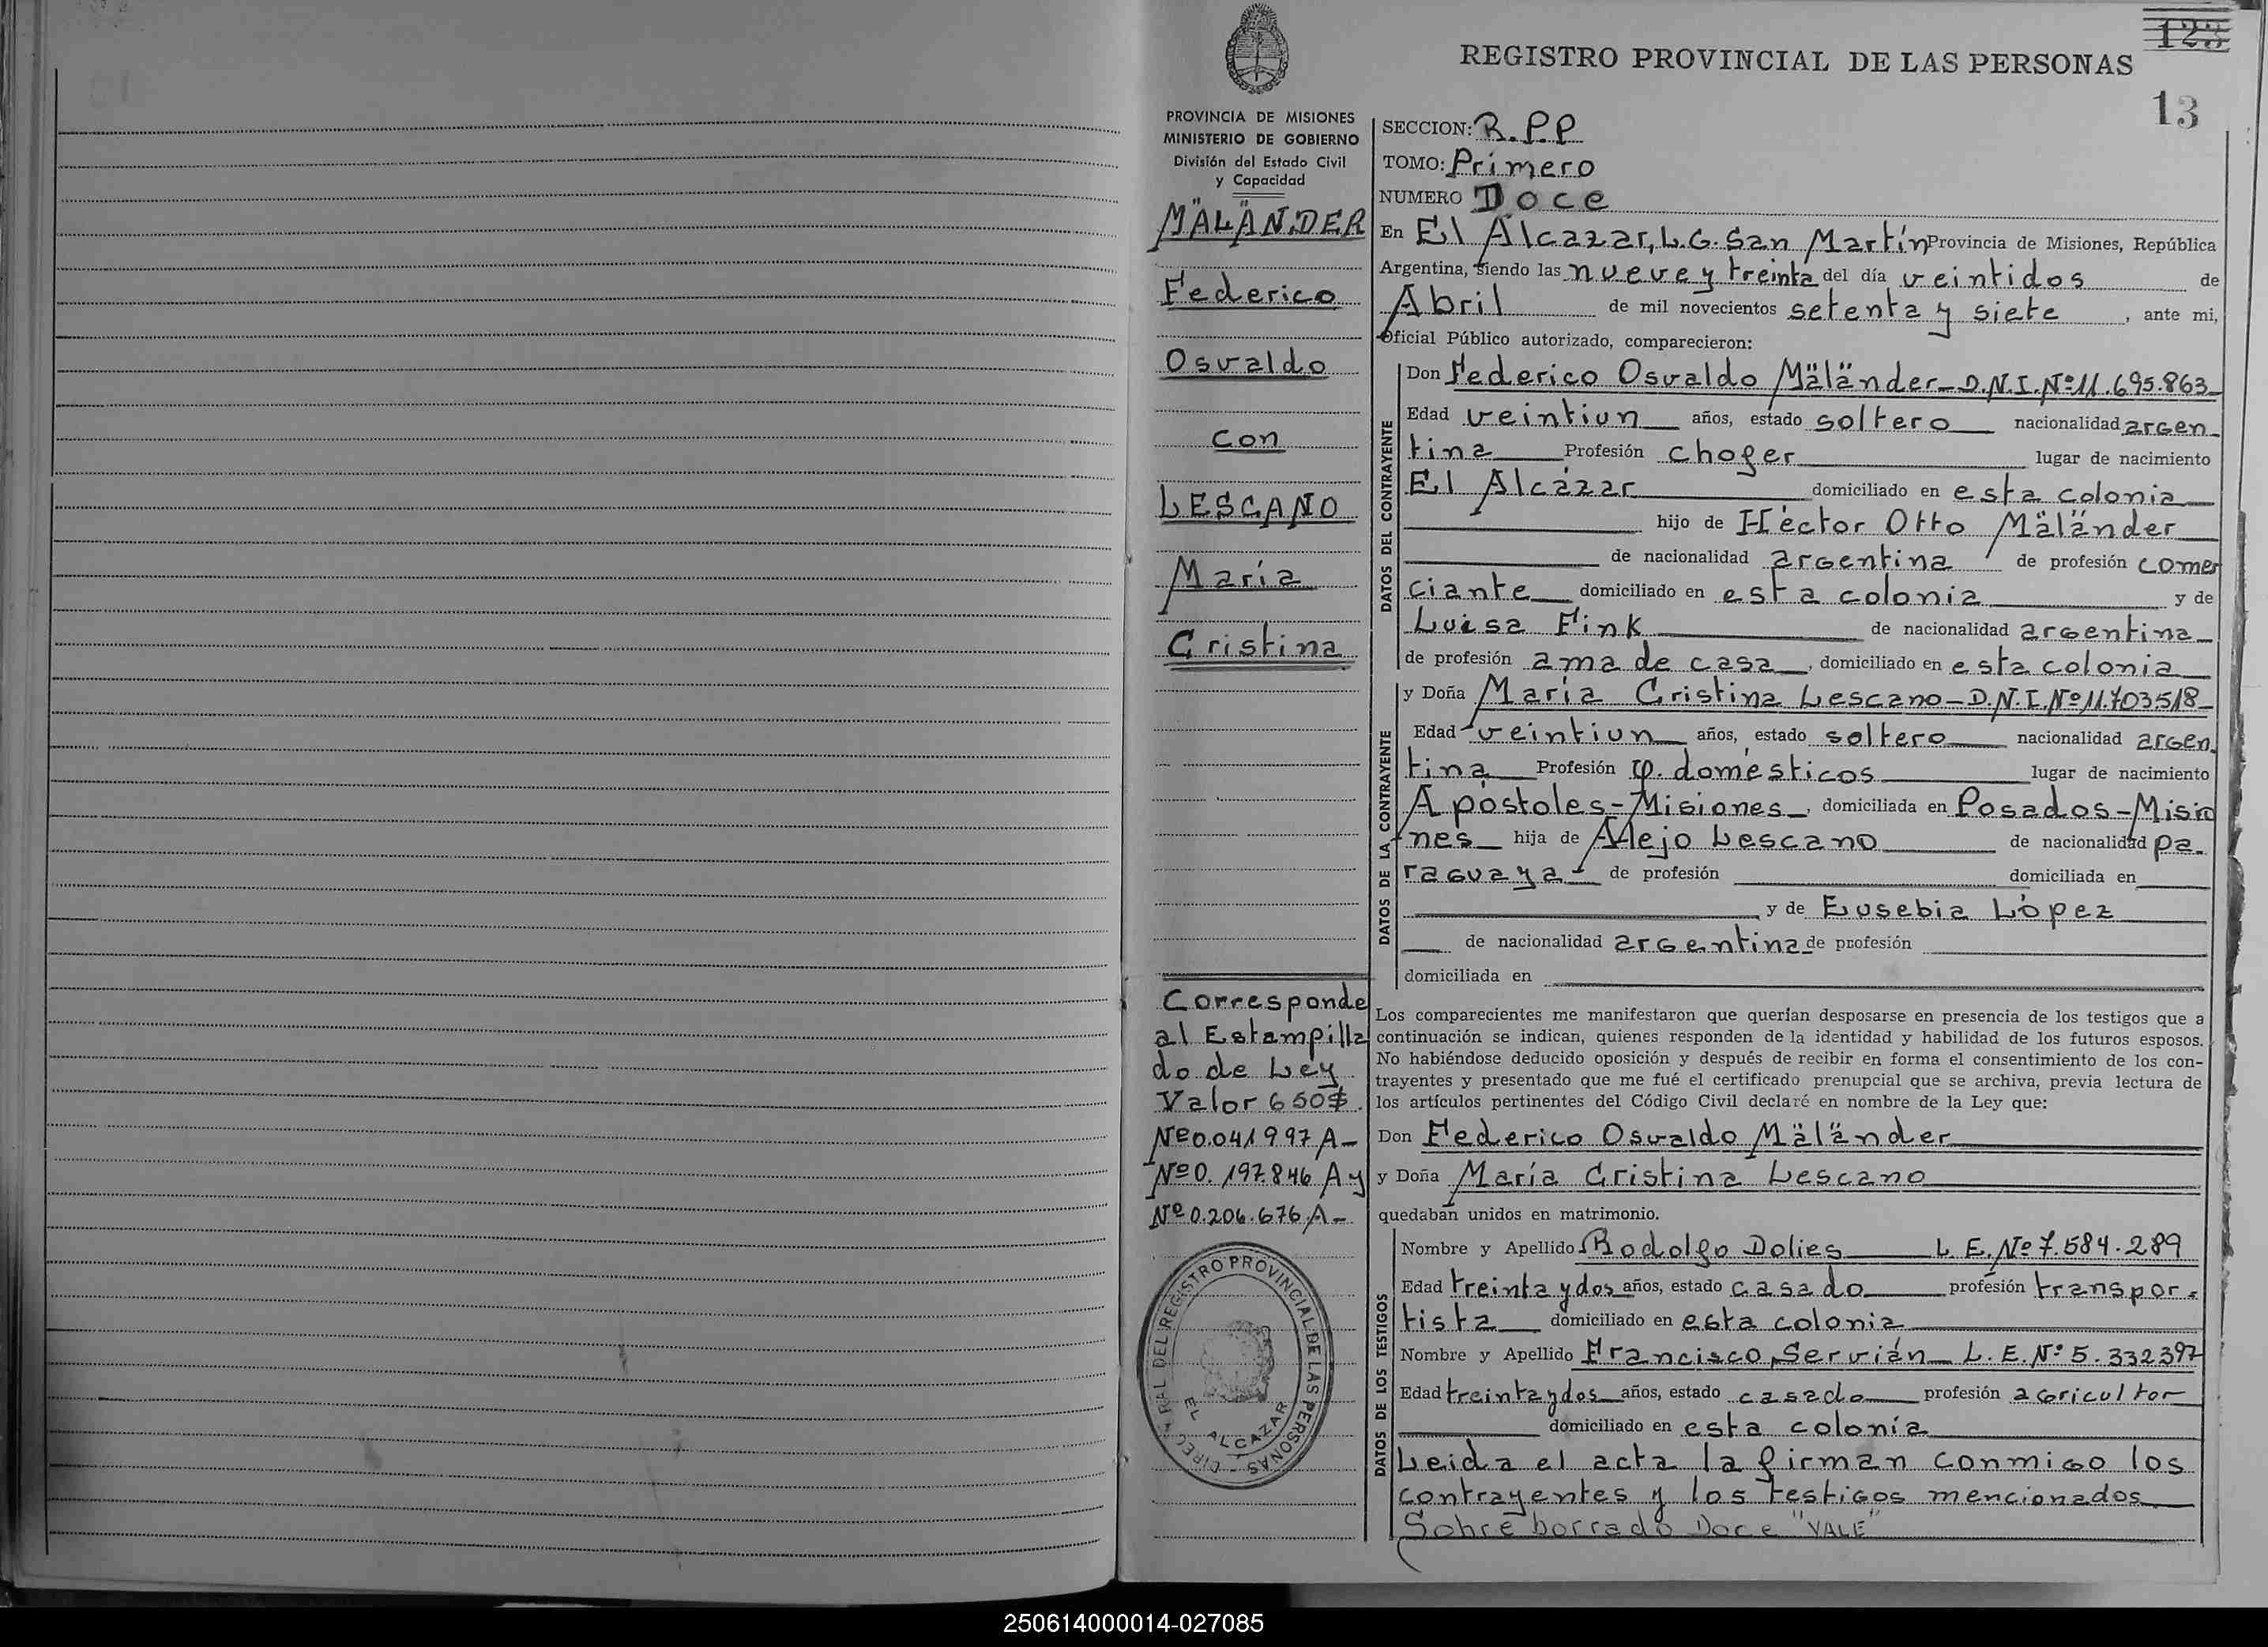 123
REGISTRO PROVINCIAL DE LAS PERSONAS
13
PROVINCIA DE MISIONES
MINISTERIO DE GOBIERNO
División del Estado Civil
y Capacidad
MÄLÄNDER
Federico
Osvaldo
con
LESCANO
María
Cristina
Corresponde
al Estampilla
do de Ley
Valor 650$.
Nº0.041997A-
Nº0.197.846 A y
Nº0.206.676 A-
DIREC RAL DEL REGISTRO PROVINCIAL DE LAS PERSONAS
EL ALCAZAR
SECCION: R.P.P
TOMO: Primero
NUMERO Doce
En El Alcazar, L.G. San Martín Provincia de Misiones, República
Argentina, siendo las nueve y treinta del día veintidos de
Abril de mil novecientos setenta y siete, ante mi,
Oficial Público autorizado, comparecieron:
DATOS DEL CONTRAYENTE
Don Federico Osvaldo Mäländer - D.N.I. Nº11.695.863
Edad veintiun años, estado soltero nacionalidad argen
tina Profesión chofer lugar de nacimiento
El Alcázar domiciliado en esta colonia
hijo de Héctor Otto Mäländer
de nacionalidad argentina de profesión comer
ciante domiciliado en esta colonia y de
Luisa Fink de nacionalidad argentina
de profesión ama de casa, domiciliado en esta colonia
DATOS DE LA CONTRAYENTE
y Doña María Cristina Lescano - D.N.I. Nº11.703518
Edad veintiun años, estado soltero nacionalidad argen.
tina Profesión q. domésticos lugar de nacimiento
Apóstoles-Misiones, domiciliada en Posados-Misio
nes hija de Alejo Lescano de nacionalidad pa.
raguaya de profesión domiciliada en
y de Eusebia López
de nacionalidad argentina de profesión
domiciliada en
Los comparecientes me manifestaron que querían desposarse en presencia de los testigos que a
continuación se indican, quienes responden de la identidad y habilidad de los futuros esposos.
No habiéndose deducido oposición y después de recibir en forma el consentimiento de los con-
trayentes y presentado que me fué el certificado prenupcial que se archiva, previa lectura de
los artículos pertinentes del Código Civil declaré en nombre de la Ley que:
Don Federico Osvaldo Mäländer
y Doña María Cristina Lescano
quedaban unidos en matrimonio.
DATOS DE LOS TESTIGOS
Nombre y Apellido Rodolfo Dolies L.E. Nº7.584.289
Edad treinta y dos años, estado casado profesión transpor.
tista domiciliado en esta colonia
Nombre y Apellido Francisco Servián L.E. Nº5.332397
Edad treinta y dos años, estado casado profesión agricultor
domiciliado en esta colonia
Leida el acta la firman conmigo los
contrayentes y los testigos mencionados
Sobre borrado Doce "VALE"
250614000014-027085